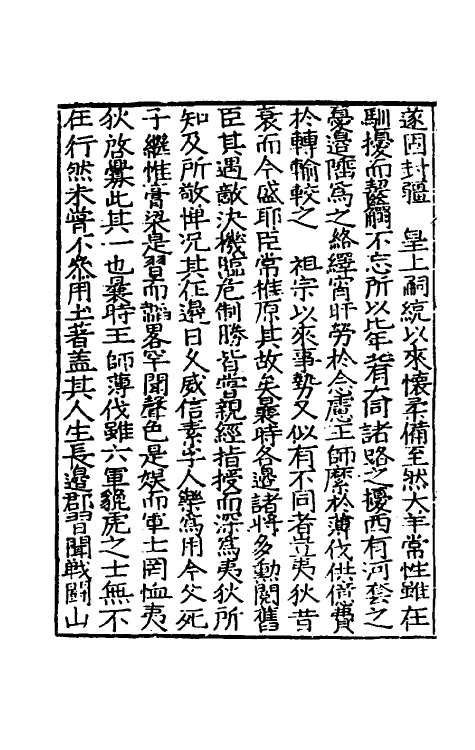 遂固封疆　皇上嗣統以來懷柔備至然犬羊常性雖在
馴擾而齧噬不忘所以比年者有大同諸路之擾西有河套之
憂邊陲爲之絡繹宵旰勞於念慮王師縻於薄伐供億費
於轉輸較之　祖宗以來事勢又似有不同者豈夷狄昔
衰而今盛耶臣常推原其故矣曩時各邊諸將多勳閥舊
臣其遇敵決機臨危制勝皆嘗親經指授而深爲夷狄所
知及所敬憚況其在邊日久威信素孚人樂爲用今父死
子繼惟膏梁是習而韜畧罕聞聲色是娱而軍士罔恤夷
狄啓釁此其一也曩時王師薄伐雖六軍貔虎之士無不
在行然未甞不叅用土著盖其人生長邊郡習聞戰鬭山